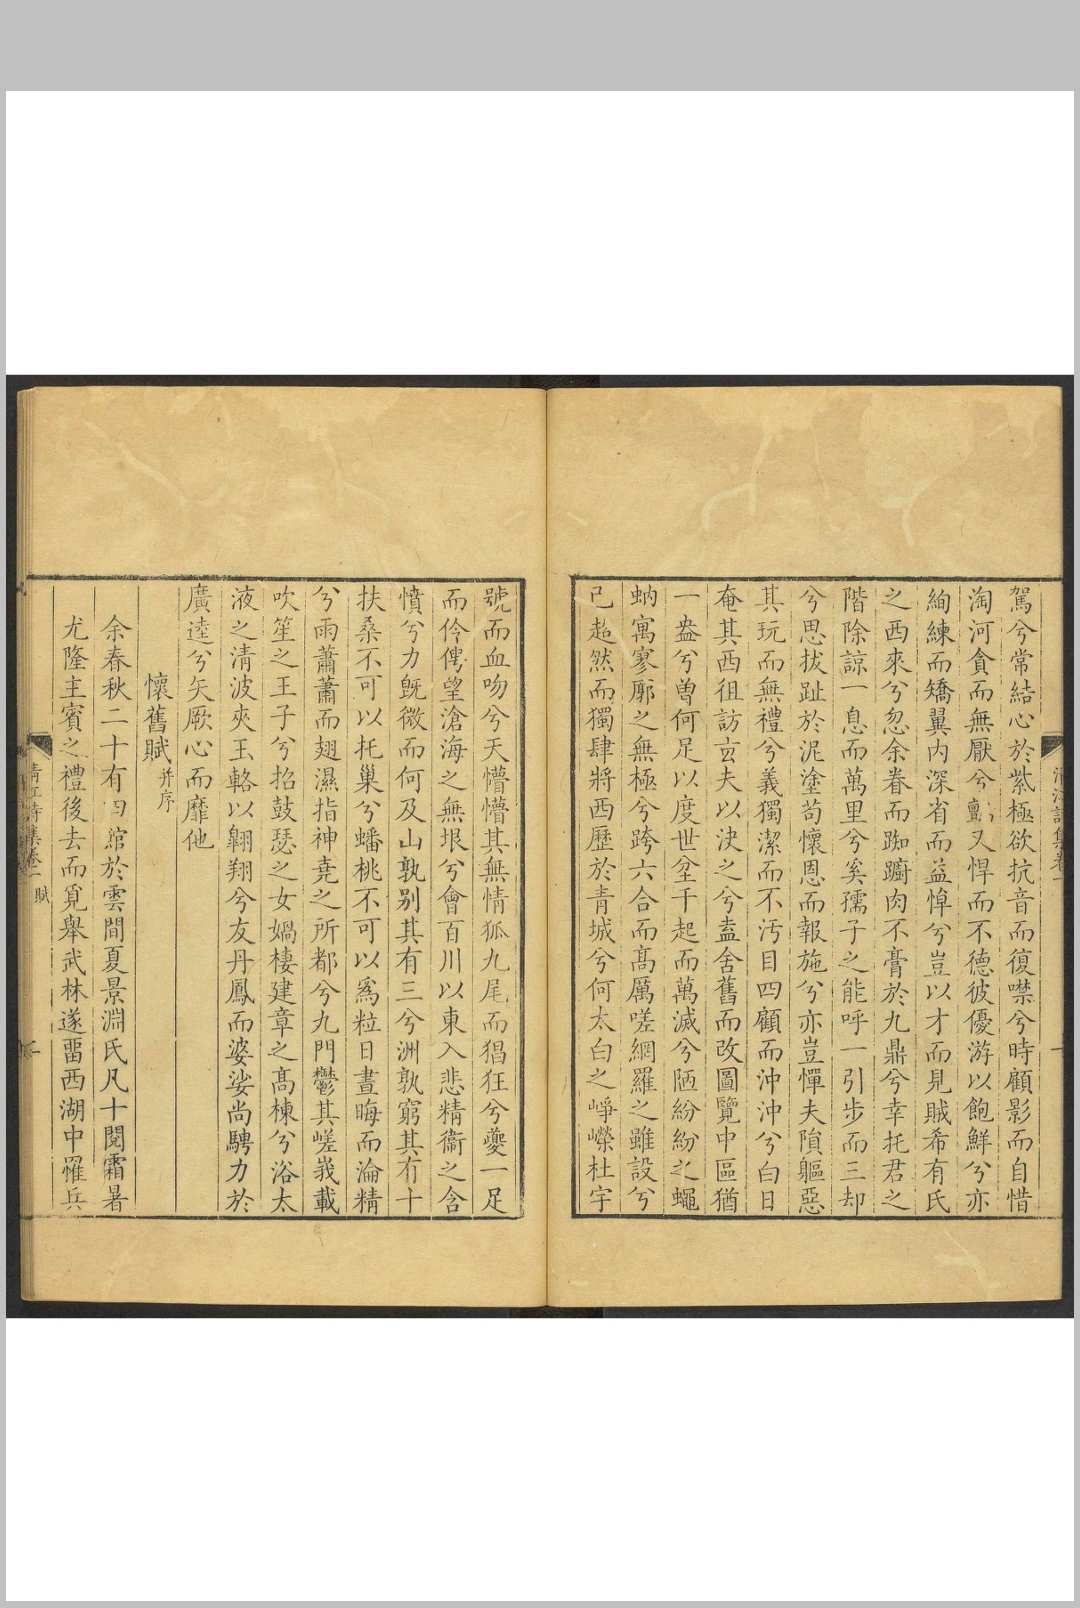 駕兮常結心於紫極欲抗音而復噤兮時顧影而自惜
淘河貪而無厭兮又悍而不德彼優游以飽鮮兮亦
絢練而矯翼内深省而益悼兮豈以才而見賊希有氏
之西來兮忽余眷而踟躕肉不膏於九鼎兮幸托君之
階除諒一息而萬里兮奚孺子之能呼一引步而三却
兮思拔趾於泥塗苟懷恩而報施兮亦豈憚夫隕軀惡
其玩而無禮兮義獨潔而不汚目四顧而沖沖兮白日
奄其西徂訪玄夫以決之兮盍舍舊而改圖覽中區猶
一盎兮曾何足以度世坌千起而萬滅兮陋紛紛之蠅
蚋寓寥廓之無極兮跨六合而高厲嗟網羅之雖設兮
已超然而獨肆將西歷於青城兮何太白之崢嶸杜宇
號而血吻兮天懵懵其無情狐九尾而猖狂兮夔一足
而伶俜望滄海之無垠兮會百川以東入悲精衞之含
憤兮力旣微而何及山孰别其有三兮洲孰窮其有十
扶桑不可以托巢兮蟠桃不可以爲粒日晝晦而淪精
兮雨蕭蕭而翅濕指神堯之所都兮九門鬱其嵯峩載
吹笙之王子兮招鼓瑟之女媧棲建章之高棟兮浴太
液之清波夾玉輅以翺翔兮友丹鳳而婆娑尚騁力於
廣逵兮矢厥心而靡他
懷舊賦并序
余春秋二十有四舘於雲間夏景淵氏凡十閱霜暑
尤隆主賓之禮後去而覓舉武林遂畱西湖中罹兵
清江詩集卷一 賦